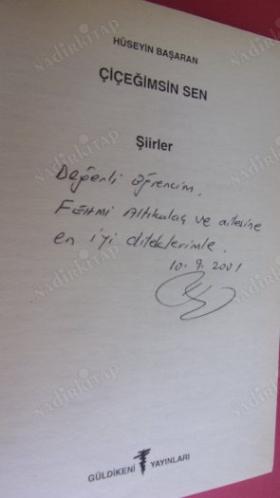 HÜSEYİN BAŞARAN
ÇİÇEĞİMSİN SEN
Şiirler
Değerli Öğrencim,
FEHMİ Altıkulaç ve ailesine
en iyi dileklerimle.
10.9.2001
GÜLDİKENİ YAYINLARI